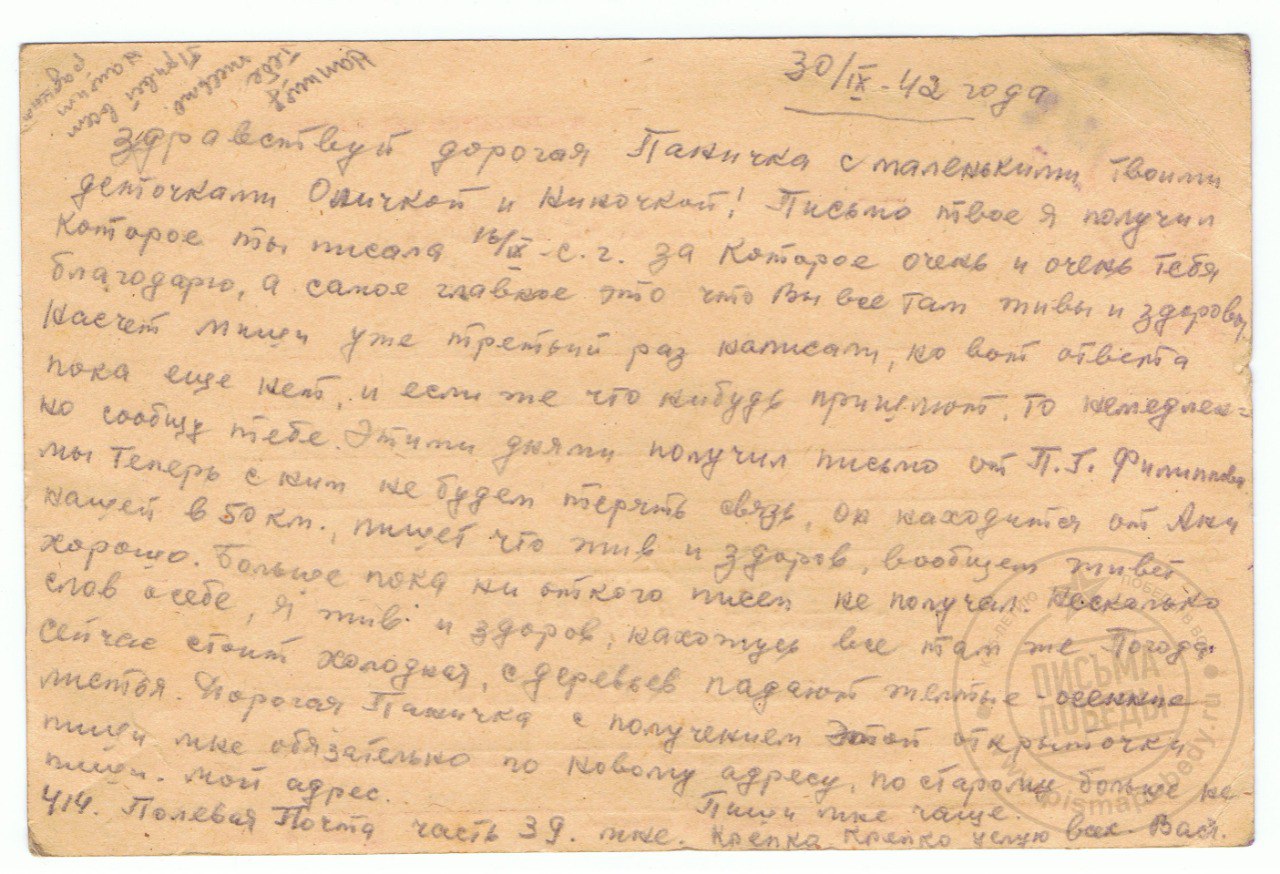 30/IX-42 года
Здравствуй дорогая Паничка с маленькими твоими
деточками Оничкой и Ниночкой! Письмо твое я получил
которое ты писала 16/IX-с.г. за которое очень и очень тебя
благодарю, а самое главное это что Вы все там живы и здоровы,
Насчет Миши уже третий раз написали, но вот ответа
пока еще нет, и если же что нибудь пришлют, то немедлен=
но сообщу тебе. Этими днями получил письмо от П.Г. Филиппова
мы теперь с ним не будем терять связь, он находится от Ани
нашей в 50 км., пишет что жив и здоров, вообщем живет
хорошо. Больше пока ни откого писем не получал. Несколько
слов о себе, я жив и здоров, нахожусь все там же. Погода
сейчас стоит холодная, с деревьев падают желтые-осенние
листья. Дорогая Паничка с получением этой открыточки
пиши мне обязательно по новому адресу, по старому больше не-
пиши. мой адрес. Пиши мне чаще.
414. Полевая Почта часть 39. мне. Крепко крепко целую всех. Вася.
Привет всем
нашим
родным
ПИСЬМА
ПОБЕДЫ
pismapobedy.ru